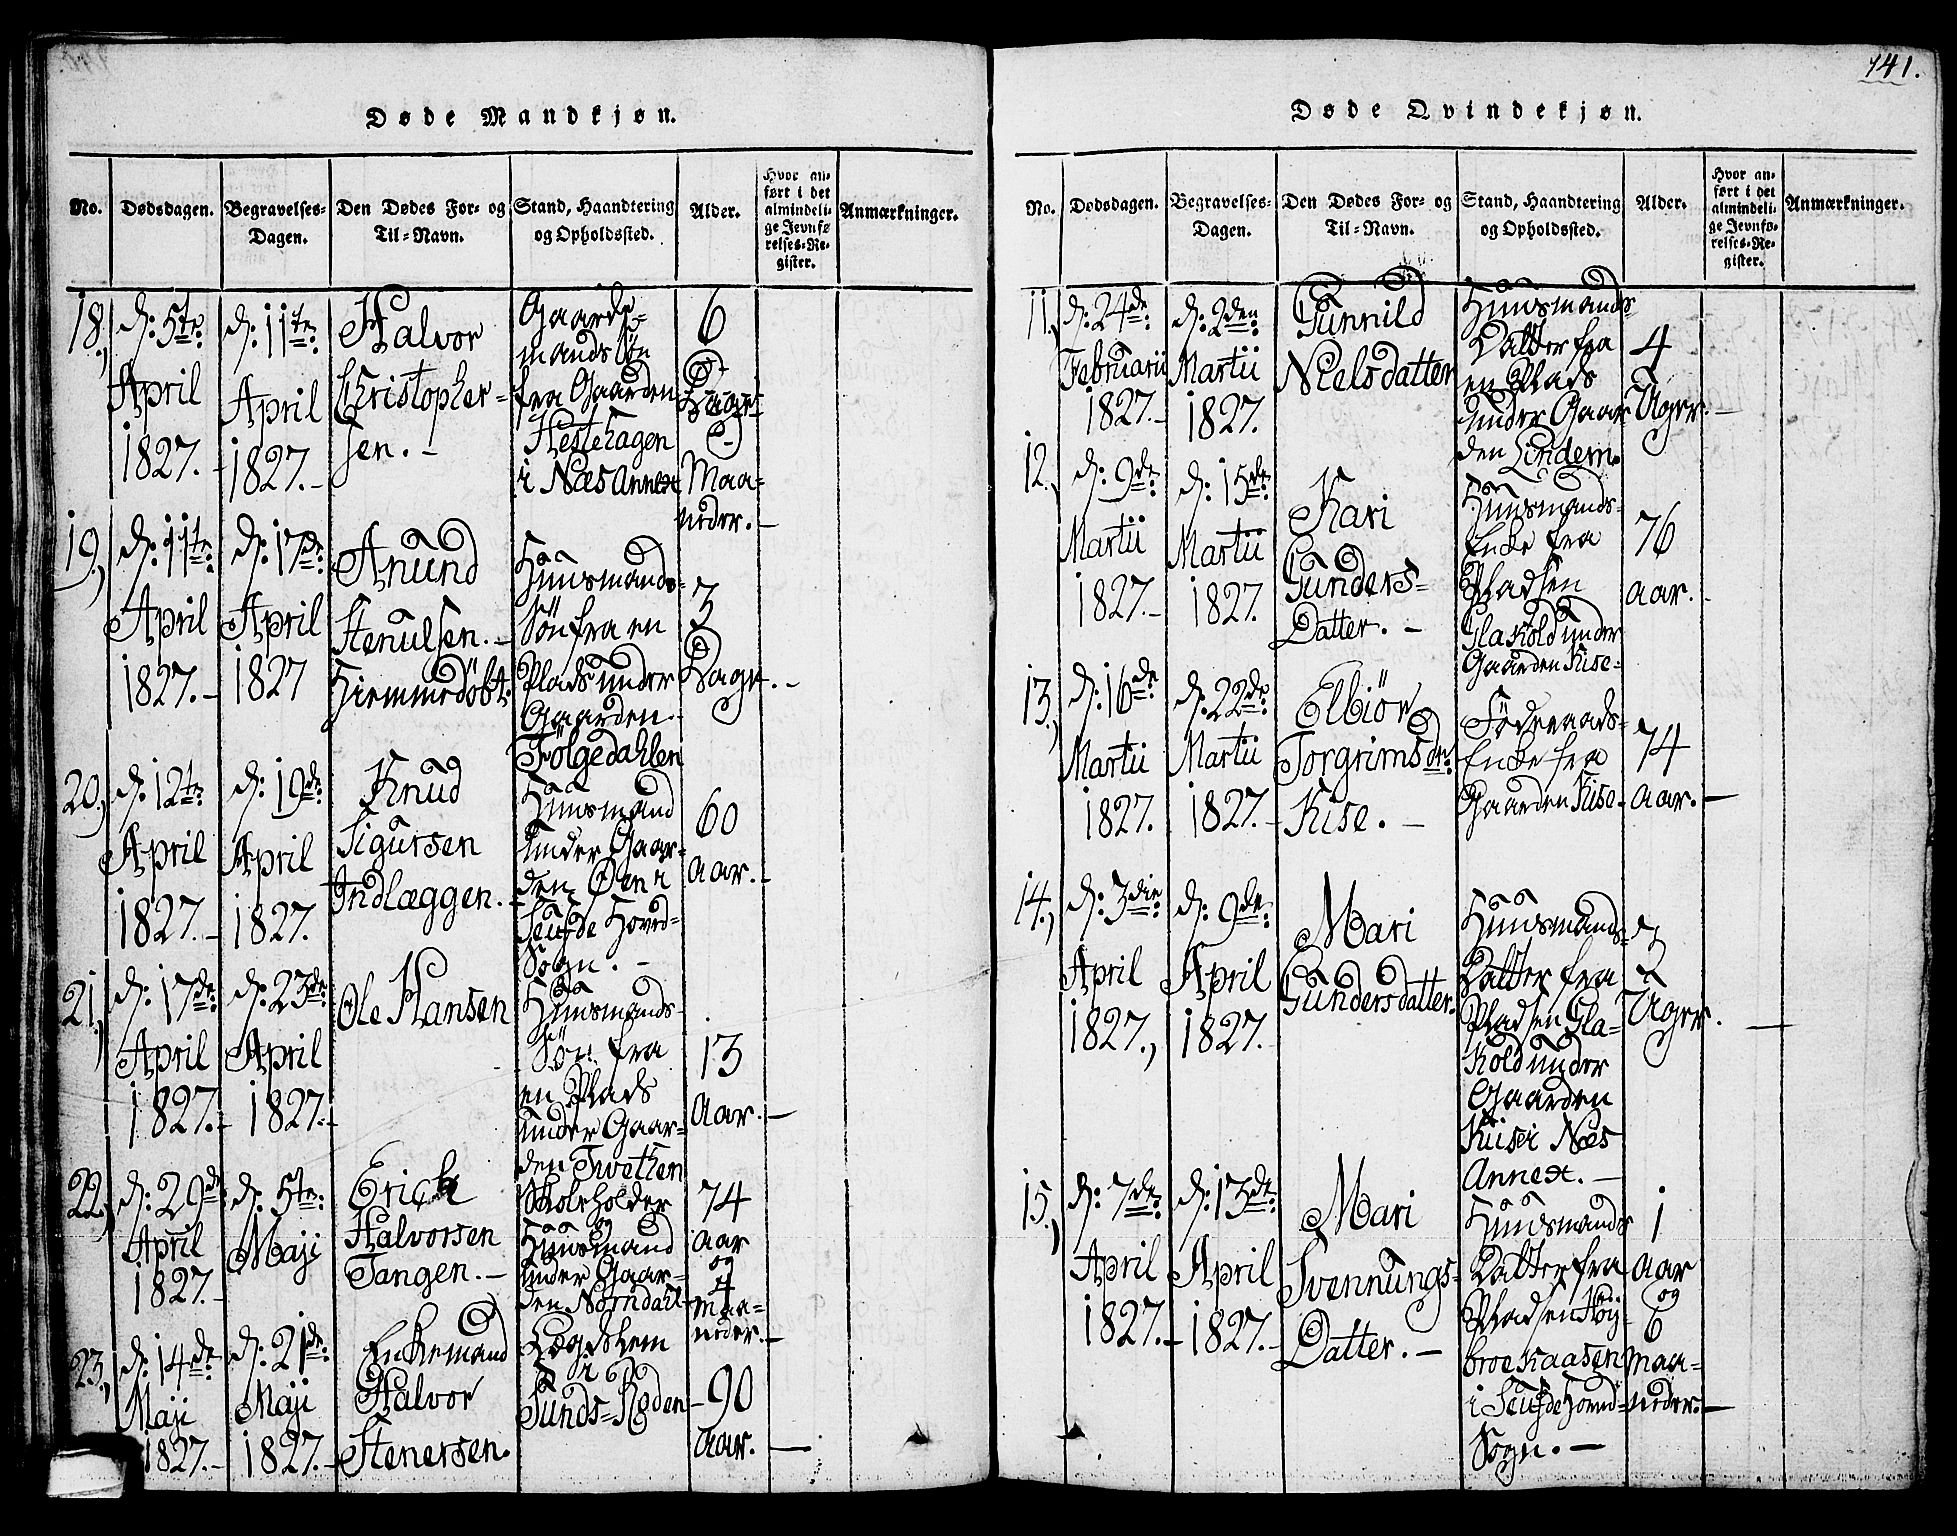 Døde Mandkjøn.
No.
Dødsdagen.
Begravelses-
Dagen.
Den Dødes For- og
Til-Navn.
Stand, Haandtering
og Opholdssted.
Alder.
Hvor an-
ført i det
almindeli-
ge Jevnfø-
relses-Re-
gister.
Anmærkninger.
18.,
d: 5te:
April
1827.-
d: 11te:
April
1827.-
Halvor
Christopher-
sen.-
Gaards-
mands Søn
fra Gaarden
Hestehagen
i Næs Annex
6
Dage
Maa-
neder.-
19.,
d: 11te:
April
1827.-
d: 17de:
April
1827
Anund
Stenulsen.-
Hiemmedöbt.
Huusmands-
Sön fra en
Plads under
Gaarden
Fölgedahlen
3
Dage.-
20.,
d: 12te:
April
1827.-
d: 19de:
April
1827.
Knud
Sigursen
Indlæggen.-
Huusmand
under Gaar-
den Øen i
Seufde Hoved-
Sogn.-
60
aar.-
21.,
d: 17de:
April
1827.-
d: 23de:
April
1827.-
Ole Hansen
Huusmands-
Sön fra
en Plads
under Gaar-
den Tvethen
13
Aar.-
22.,
d: 29de:
April
1827.-
d: 5te:
Maji
Erick
Halvorsen
Tangen.-
Skoleholder
og
Huusmand
under Gaar-
den Norndahl
74
aar
og
4
maa-
neder.-
23.,
d: 14de:
Maji
1827.-
d: 21de:
Maji
1827.-
Enkemand
Halvor
Stenersen.
Lægdslem
i
Sunds-Roden
90
Aar.-
141.
Døde Qvindekjøn.
No.
Dødsdagen.
Begravelses-
Dagen.
Den Dødes For- og
Til-Navn.
Stand, Haandtering
og Opholdssted.
Alder.
Hvor an-
ført i det
almindeli-
ge Jevnfø-
relses-Re-
gister.
Anmærkninger.
11.,
d: 24de:
Februarii
1827.-
d: 2den:
Martii
1827.
Gunnild
Nielsdatter
Huusmands-
Datter fra
en Plads
under Gaar-
den Lindem.
4
Uger.-
12.,
d: 9de:
Martii
1827.-
d: 15de:
Martii
1827.
Kari
Gunders-
Datter.-
Huusmands-
Enke fra
Pladsen
Glakold under
Gaarden Kise-
76
aar.-
13.,
d: 16de:
Martii
1827.
d: 22de:
Martii
1827.-
Elbiör
Torgrimsdr:
Kise.-
Föderaads-
Enke fra
Gaarden Kise.
74
aar.-
14.,
d: 3die:
April
1827.,
d: 9de:
April
1827.-
Mari
Gundersdatter.
Huusmands-
Datter fra
Pladsen Gla-
kold under
Gaarden
Kise i Næs
Annex.-
3
Uger.-
15.,
d: 7de:
April
1827.-
d: 13de:
April
1827.-
Mari
Svennungs-
Datter.-
Huusmands
Datter fra
Pladsen Höy-
broekaasen
i Seufde Hoved-
Sogn.-
1
aar
og
6
maa-
neder.-